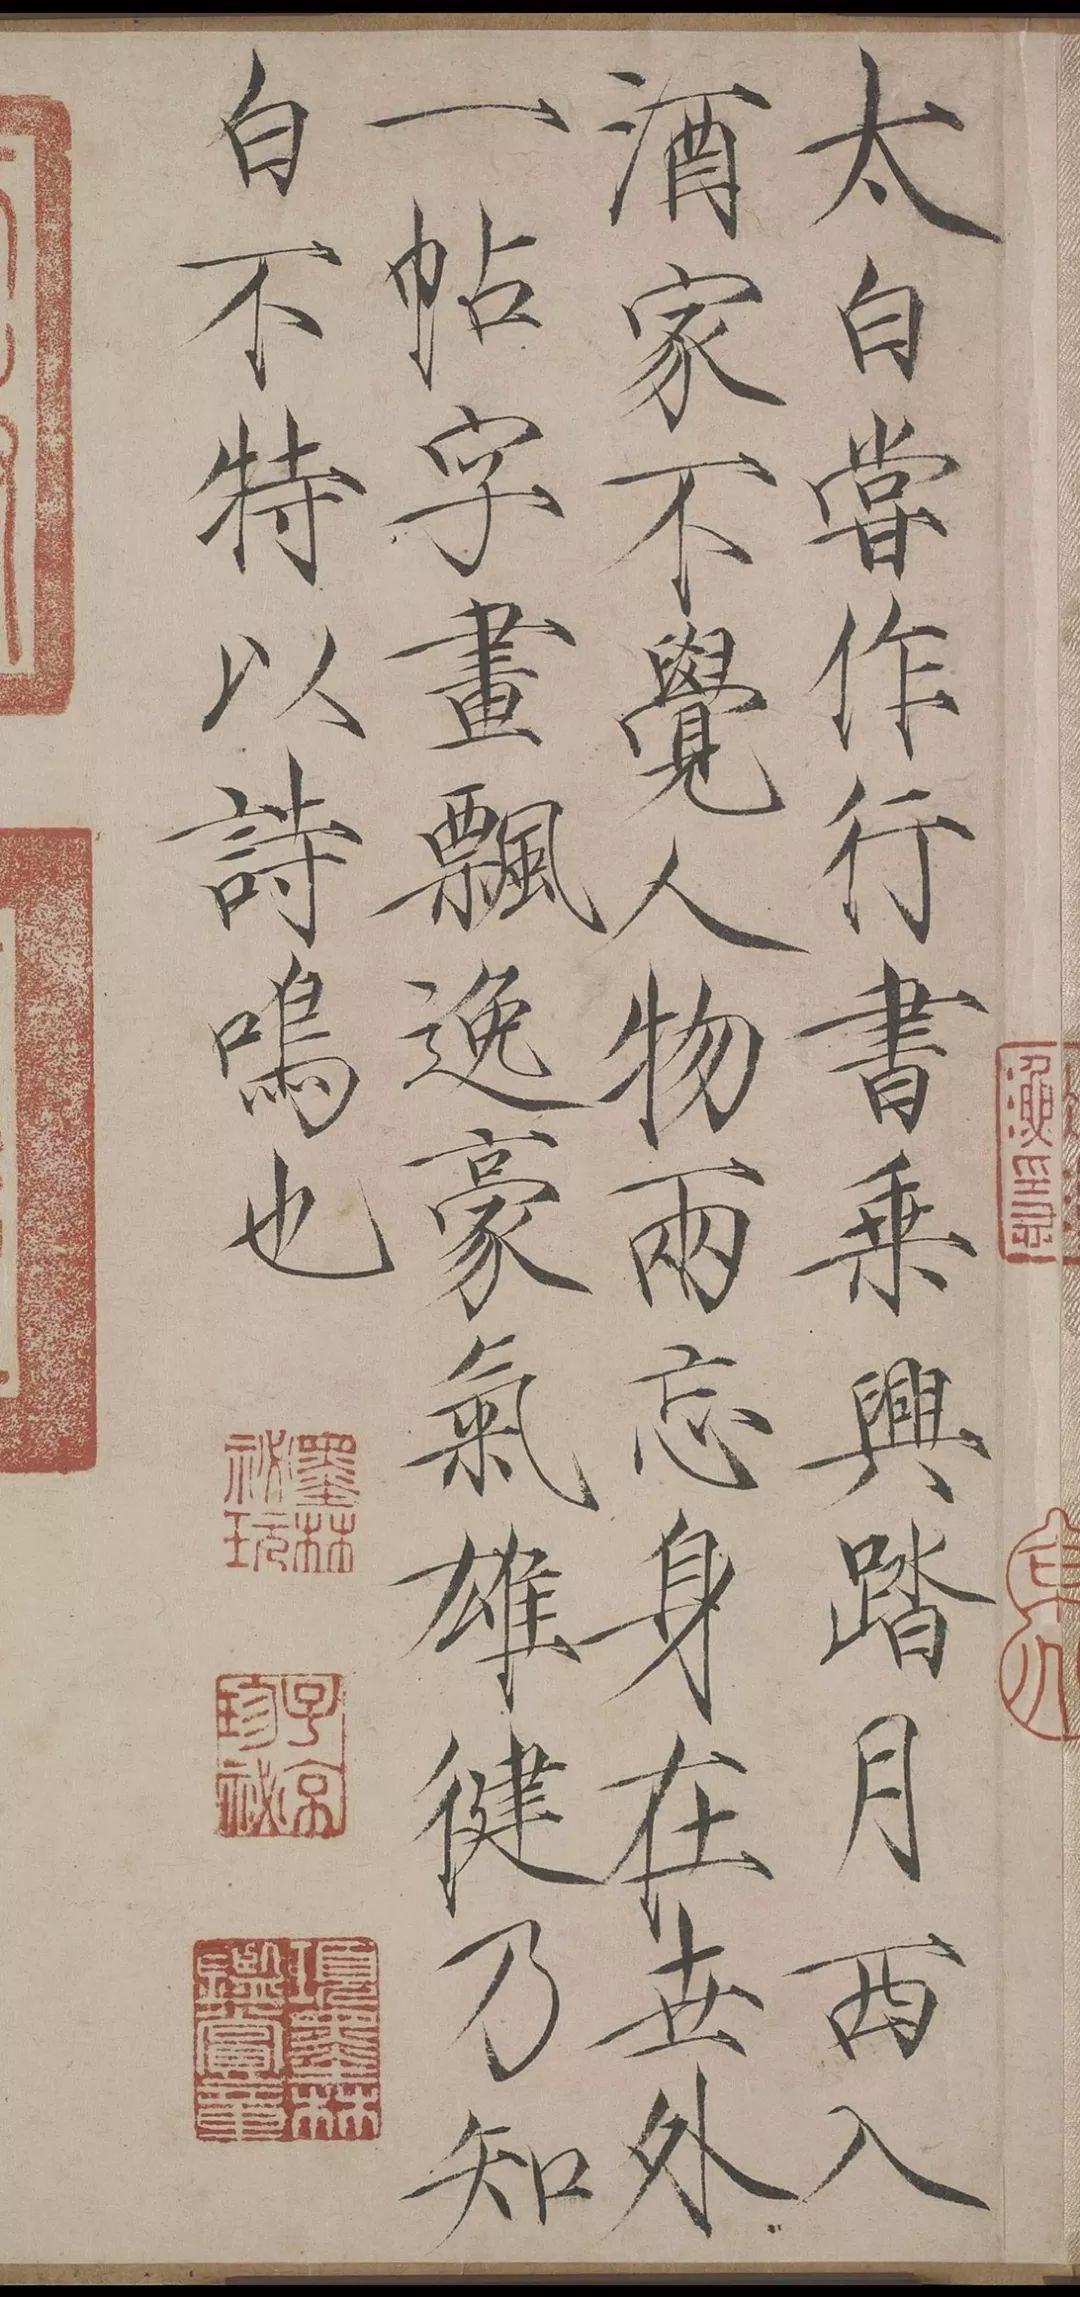 太白嘗作行書乘興踏月西入
酒家不覺人物兩忘身在世外
一帖字畫飄逸豪氣雄健乃知
白不特以詩鳴也
墨林祕玩
子京珍祕
項墨林鑑賞章